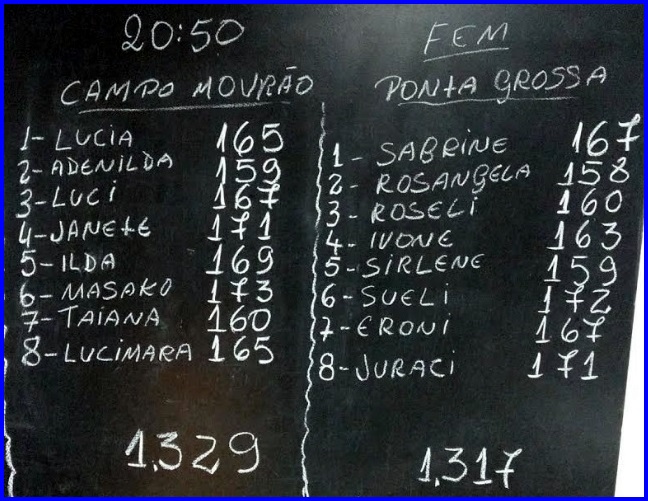 20:50
CAMPO MOURÃO
1- LUCIA 165
2- ADENILDA 159
3- LUCI 167
4- JANETE 171
5- ILDA 169
6- MASAKO 173
7- TAIANA 160
8- LUCIMARA 165
1.329
FEM
PONTA GROSSA
1- SABRINE 167
2- ROSANGELA 158
3- ROSELI 160
4- IVONE 163
5- SIRLENE 159
6- SUELI 172
7- ERONI 167
8- JURACI 171
1.317